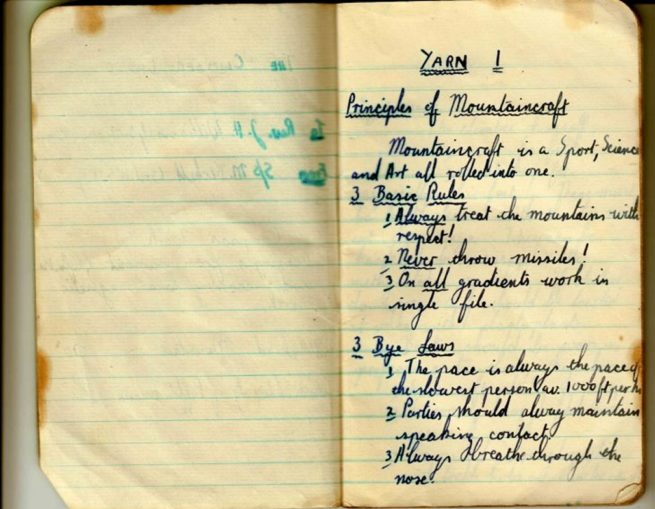 YARN 1
Principles of Mountaincraft
Mountaincraft is a Sport, Science
and Art all rolled into one.
3 Basic Rules
1 Always treat the mountains with
respect!
2 Never throw missiles!
3 On all gradients work in
single file.
3 Bye Laws
1 The pace is always the pace of
the slowest person av. 1000 ft per hr
2 Parties should alway maintain
speaking contact
3 Always breathe through the
nose.